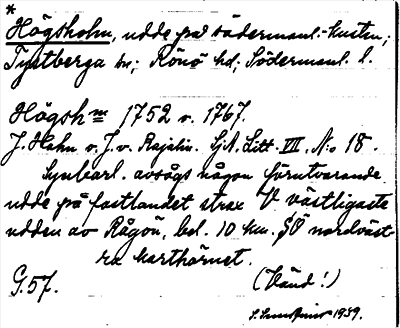 *
Högsholm, udde på södermanl. kusten;
Tystberga sn; Rönö hd; Södermanl. l.
Högsh m 1752 o. 1767.
J. Hahn o. J. v. Rajalin. SjA. Litt. VII, N:o 18.
Synbarl. avsågs någon förutvarande
udde på fastlandet strax V västligaste
udden av Rågön, bel. 10 km. SÖ nordväst-
ra karthörnet.
G. 57.
(Vänd!)
1939.